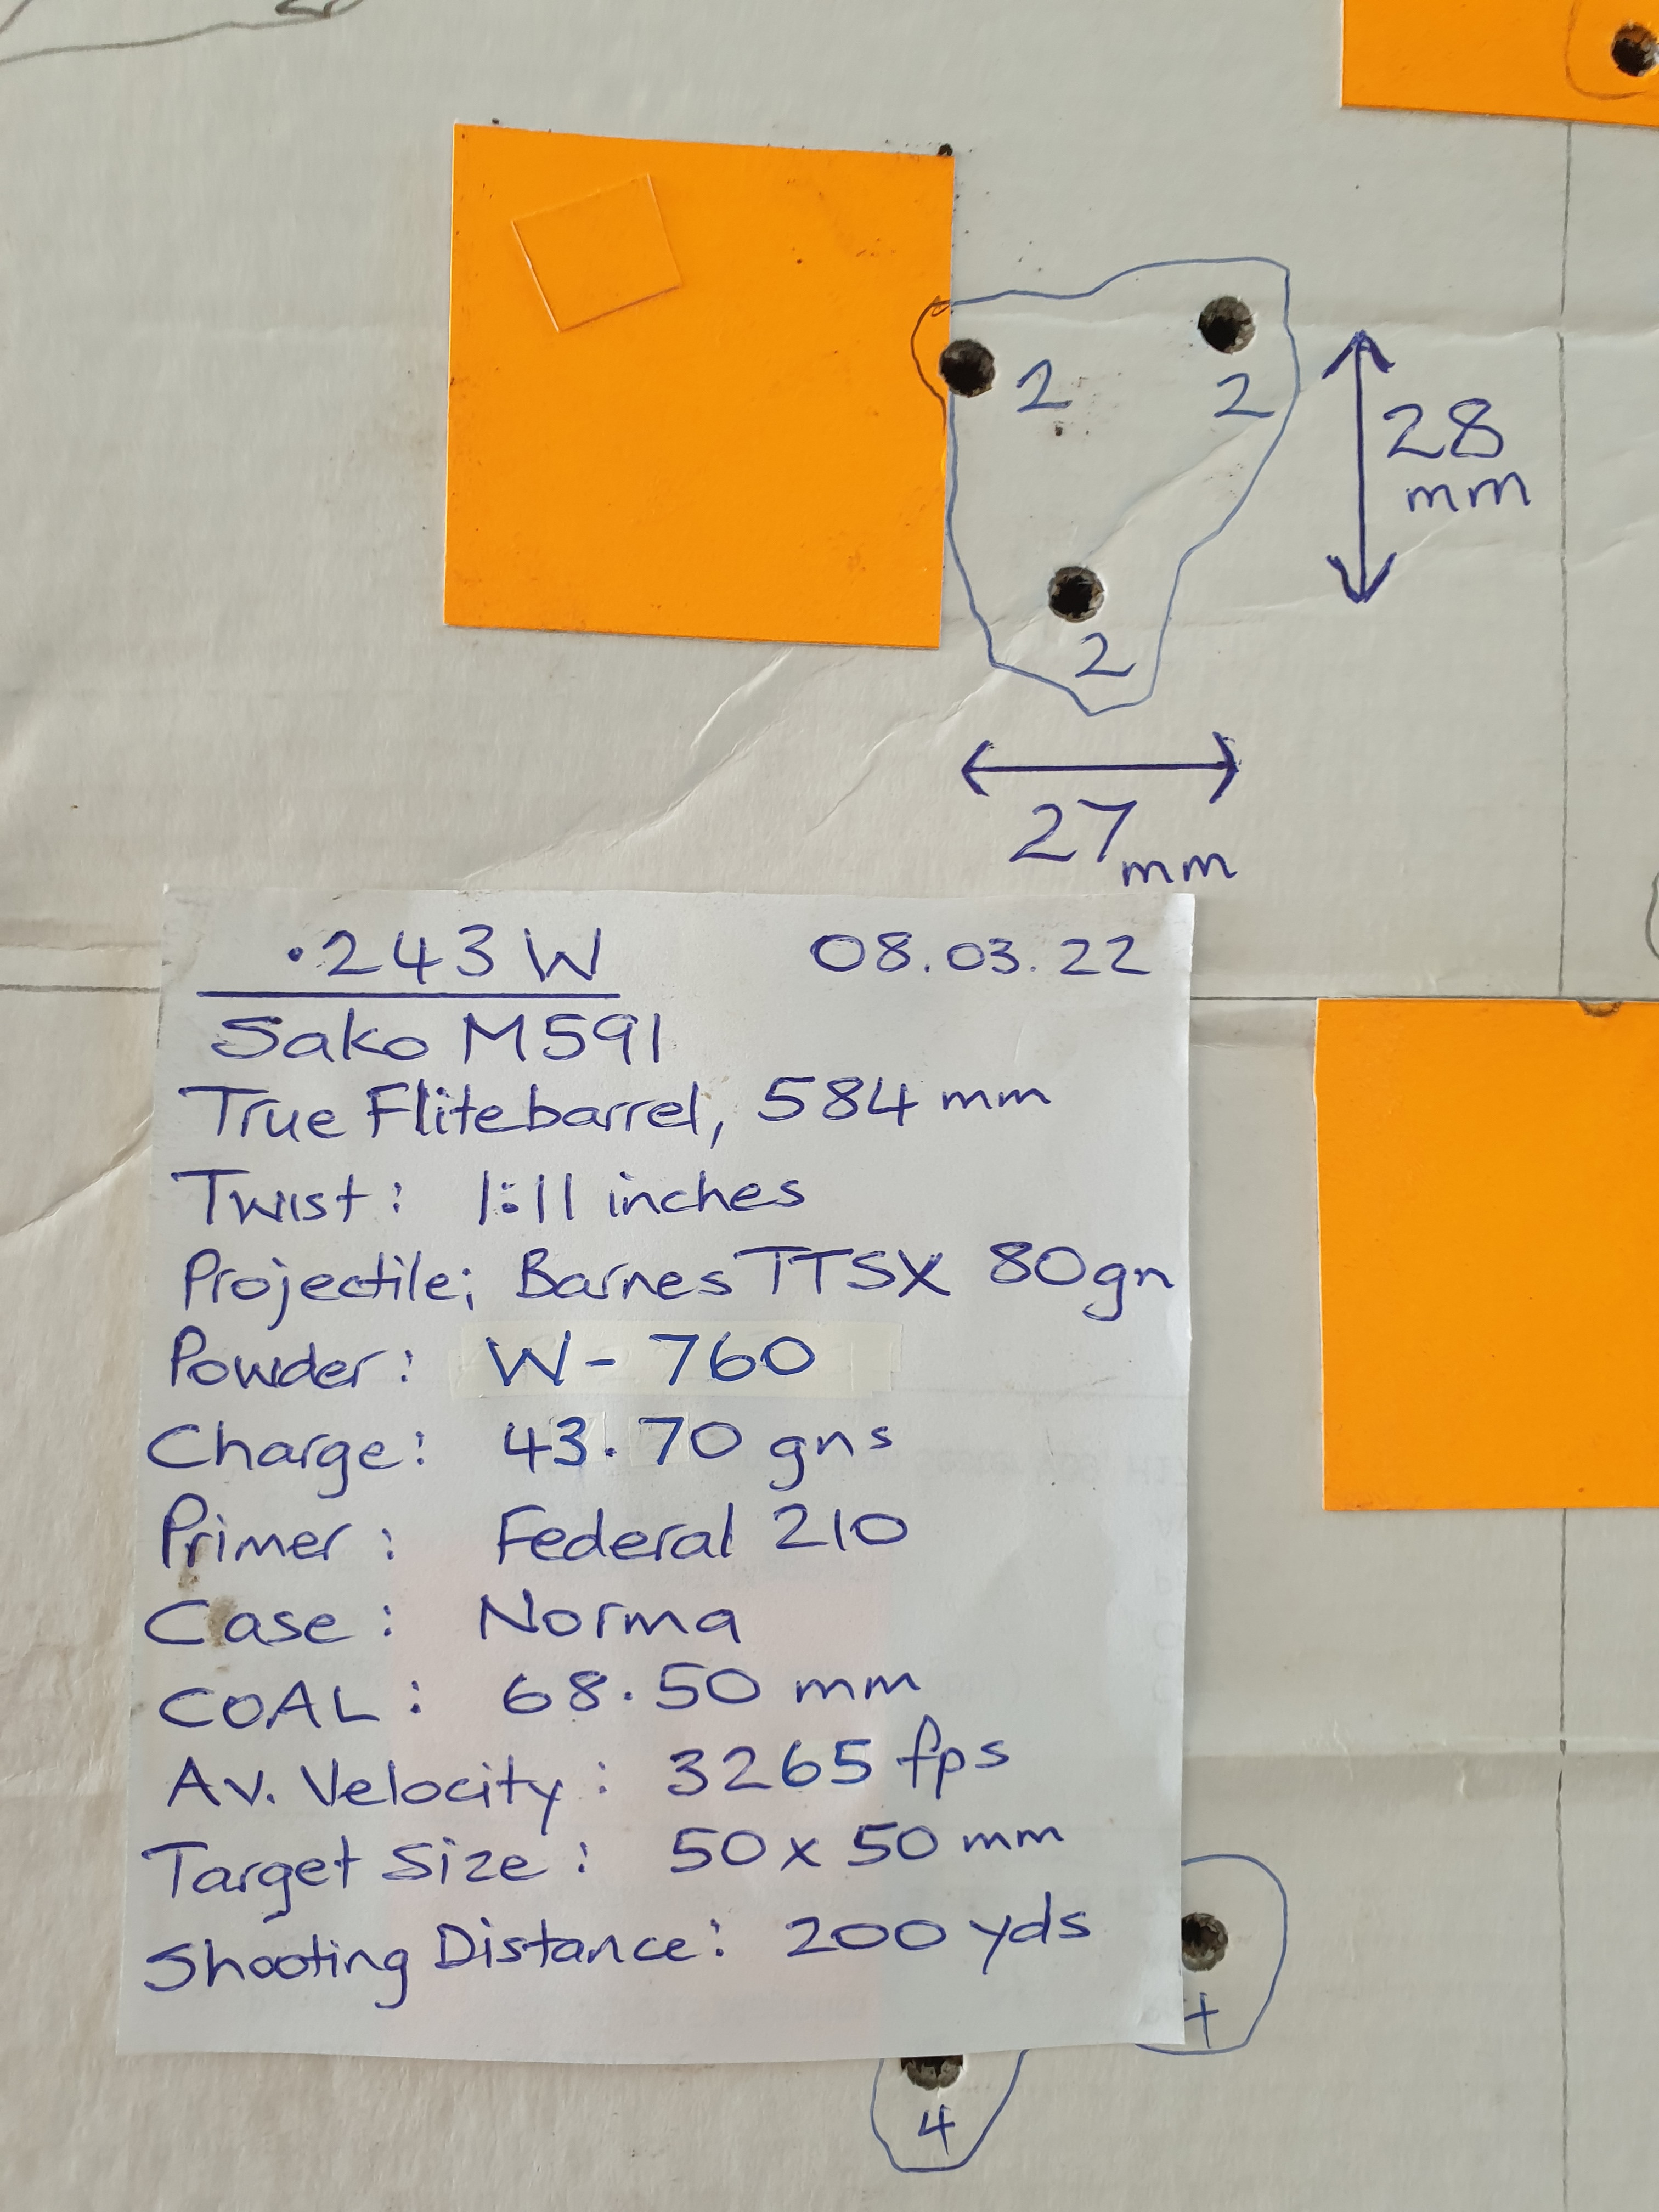 2
2
28
mm
2
27
mm
.243 W 08.03.22
Sako M591
True Flite barrel, 584 mm
Twist: 1:11 inches
Projectile; Barnes TTSX 80gn
Powder: W-760
Charge: 43.70 gns
Primer: Federal 210
Case: Norma
COAL: 68.50 mm
Av. Velocity: 3265 fps
Target Size: 50 x 50 mm
Shooting Distance: 200 yds
4
4